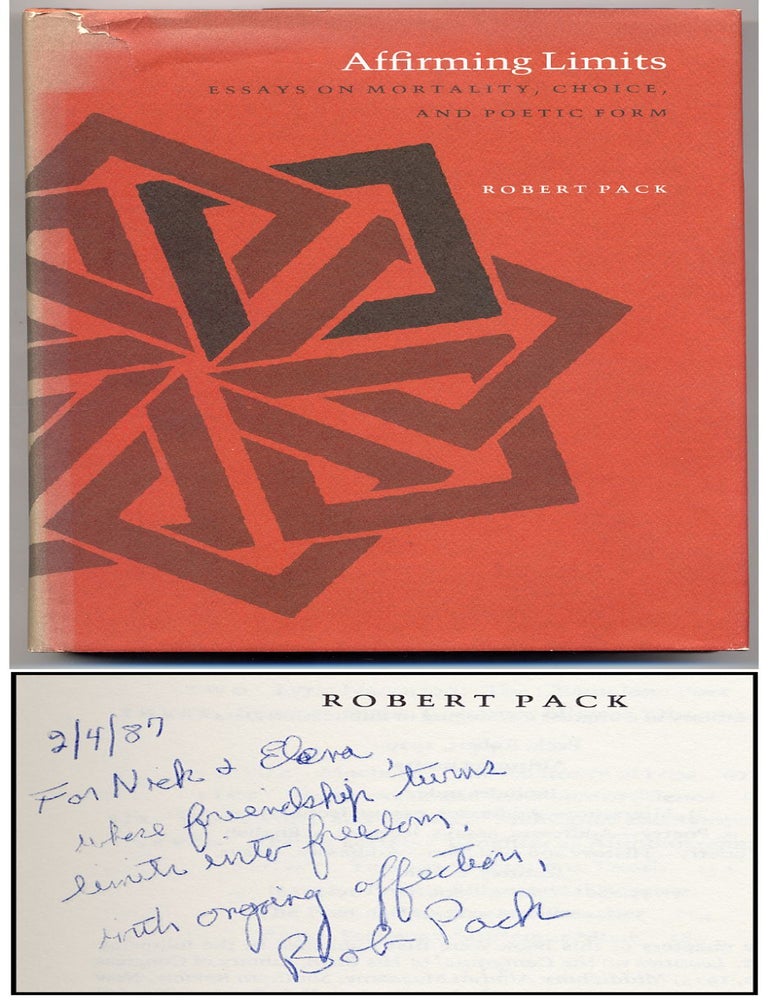 Affirming Limits
ESSAYS ON MORTALITY, CHOICE,
AND POETIC FORM
ROBERT PACK
ROBERT PACK
2/4/87
For Nick & Elena,
whose friendship turns
limits into freedom,
with ongoing affection,
Bob Pack